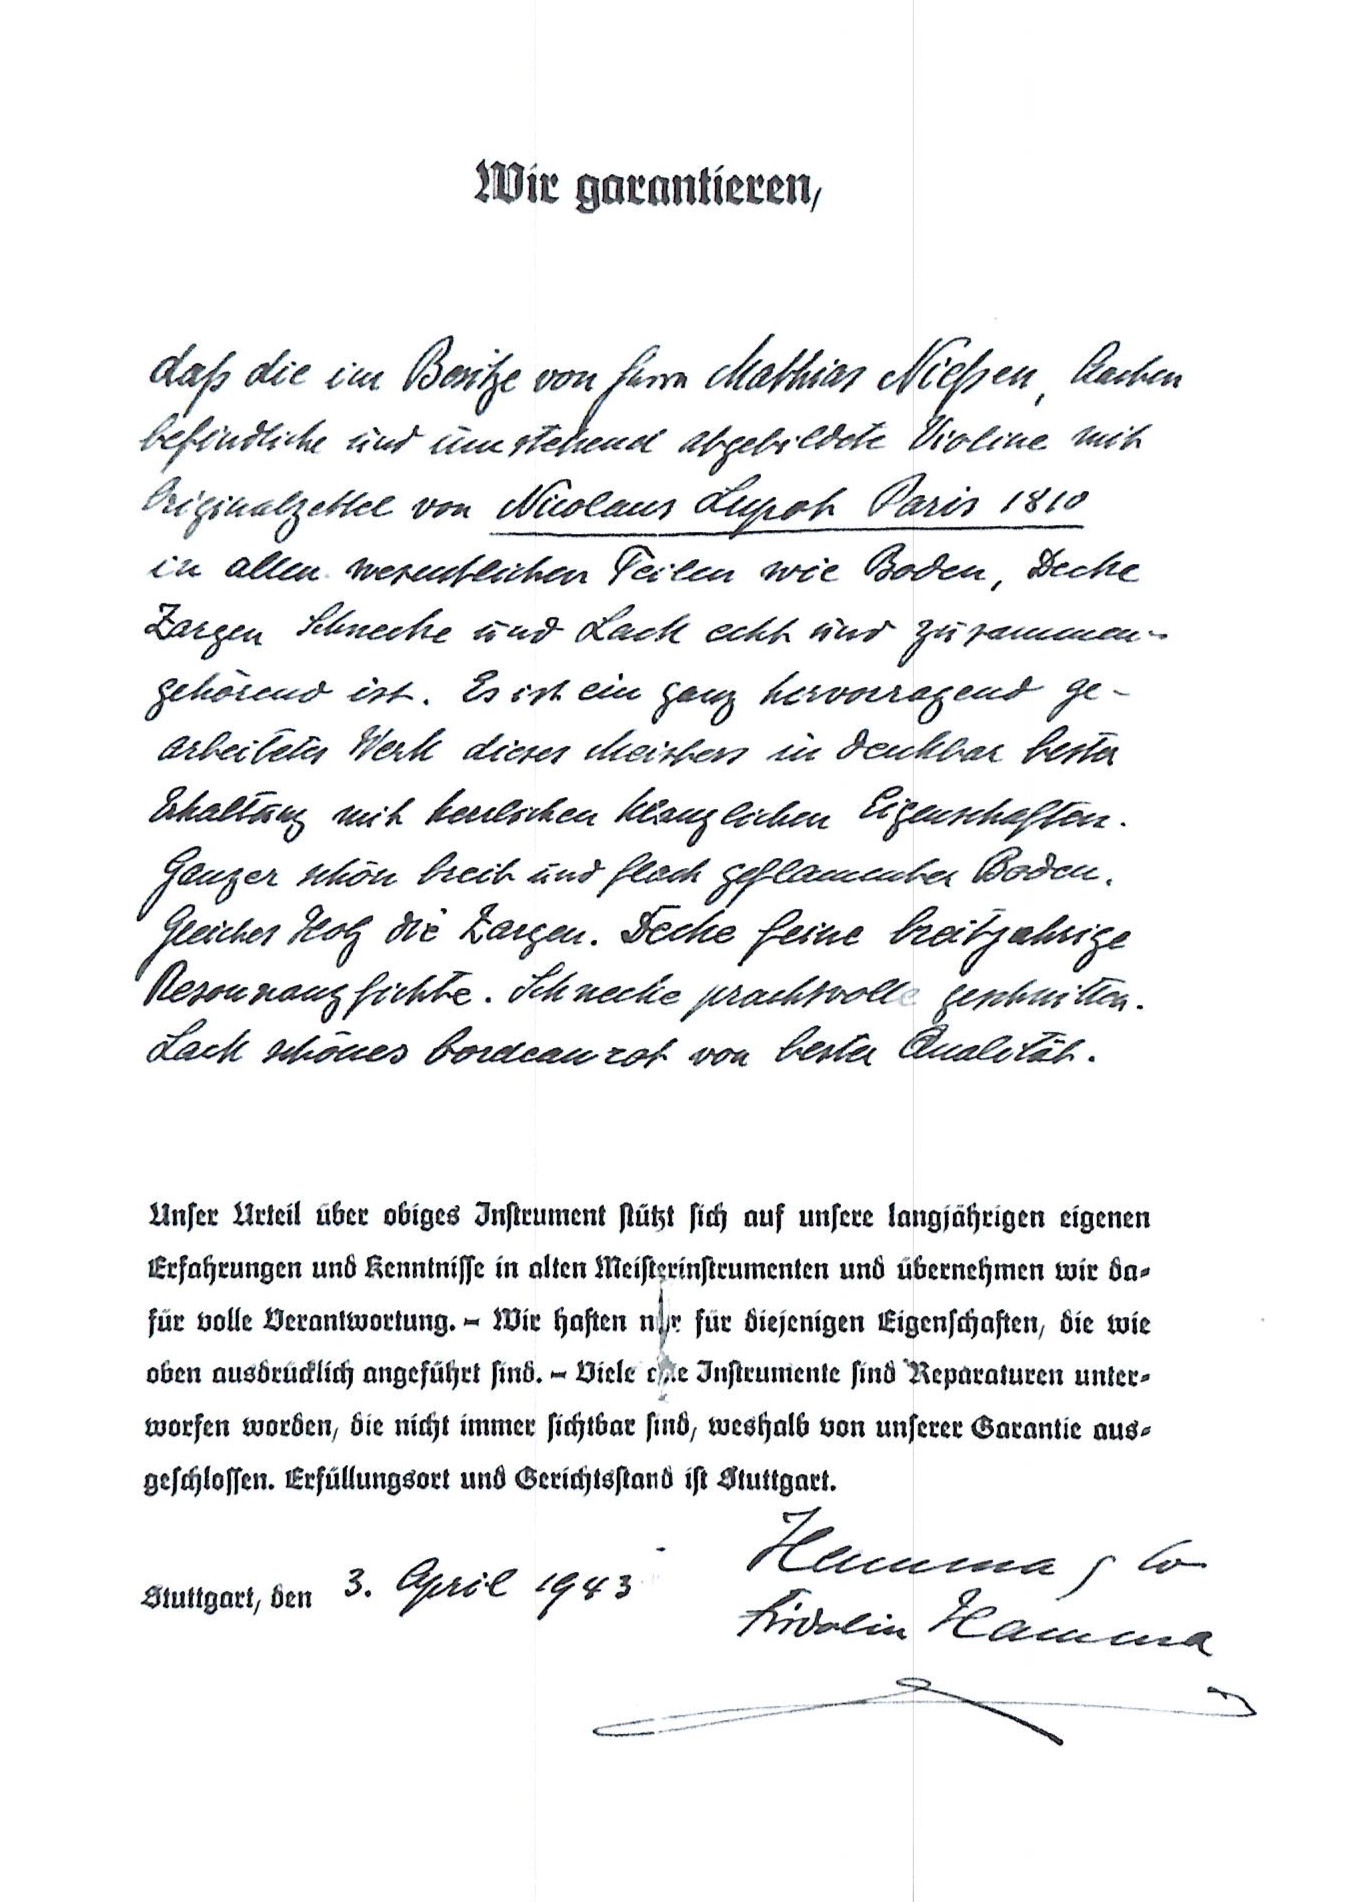 Wir garantieren,
daß die im Besitze von Herrn Mathias Nießen, Aachen
befindliche und umstehend abgebildete Violine mit
Originalzettel von Nicolaus Lupot Paris 1810
in allen wesentlichen Teilen wie Boden, Decke
Zargen Schnecke und Lack echt und zusammen-
gehörend ist. Es ist ein ganz hervorragend ge-
arbeitetes Werk dieses Meisters in denkbar bester
Erhaltung mit herrlichen klanglichen Eigenschaften.
Ganzer schön breit und flach geflammter Boden.
Gleiches Holz die Zargen. Decke feine breitjahrige
Resonnanzfichte. Schnecke prachtvolle geschnitten.
Lack schönes bordeauxrot von bester Qualität.
Unser Urteil über obiges Instrument stützt sich auf unsere langjährigen eigenen
Erfahrungen und Kenntnisse in alten Meisterinstrumenten und übernehmen wir da-
für volle Verantwortung. – Wir haften nur für diejenigen Eigenschaften, die wie
oben ausdrücklich angeführt sind. – Viele alte Instrumente sind Reparaturen unter-
worfen worden, die nicht immer sichtbar sind, weshalb von unserer Garantie aus-
geschlossen. Erfüllungsort und Gerichtsstand ist Stuttgart.
Stuttgart, den 3. April 1943
Hamma & Co
Fridolin Hamma